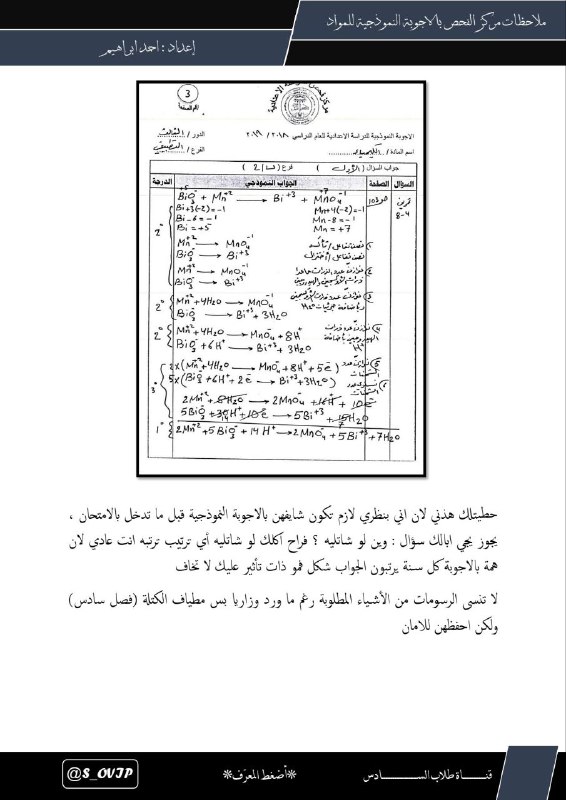 ملاحظات مركز الفحص بالاجوبة النموذجية للمواد
إعداد : احمد ابراهيم
3
رقم الصفحة
الاجوبة النموذجية للدراسة الاعدادية للعام الدراسي ٢٠١٨ / ٢٠١٩
الدور / الثالث
اسم المادة / الكيمياء
الفرع / التطبيقي
جواب السؤال ( الأول ) فرع ( 2 )
السؤال الصفحة الجواب النموذجي الدرجة
تمرين
4-8
+5 +7
BiO₃⁻ + Mn⁺² → Bi⁺³ + MnO₄⁻¹
Bi+3(-2)=-1 Mn+4(-2)=-1
Bi-6=-1 Mn-8=-1
Bi=+5 Mn=+7
Mn⁺² → MnO₄⁻¹
BiO₃⁻ → Bi⁺³
2°
Mn⁺² → MnO₄⁻¹
BiO₃⁻ → Bi⁺³
2° Mn⁺²+4H₂O → MnO₄⁻¹
BiO₃⁻ → Bi⁺³+3H₂O
2° Mn⁺²+4H₂O → MnO₄⁻+8H⁺
BiO₃⁻+6H⁺ → Bi⁺³+3H₂O
2x(Mn⁺²+4H₂O → MnO₄⁻+8H⁺+5e⁻)
5x(BiO₃⁻+6H⁺+2e⁻ → Bi⁺³+3H₂O)
3°
2Mn⁺²+8H₂O → 2MnO₄⁻+16H⁺+10e⁻
5BiO₃⁻+30H⁺+10e⁻ → 5Bi⁺³+15H₂O
1° 2Mn⁺²+5BiO₃⁻+14H⁺ → 2MnO₄⁻+5Bi⁺³+7H₂O
حطيتلك هذني لان اني بنظري لازم تكون شايفهن بالاجوبة النموذجية قبل ما تدخل بالامتحان ،
يجوز يجي ابالك سؤال : وين لو شاتليه ؟ فراح اكلك لو شاتليه أي ترتيب ترتبه انت عادي لان
همة بالاجوبة كل سنة يرتبون الجواب شكل فمو ذات تأثير عليك لا تخاف
لا تنسى الرسومات من الأشياء المطلوبة رغم ما ورد وزاريا بس مطياف الكتلة (فصل سادس)
ولكن احفظهن للامان
قناة طلاب السادس
*أضغط المعرف*
@S_OVIP